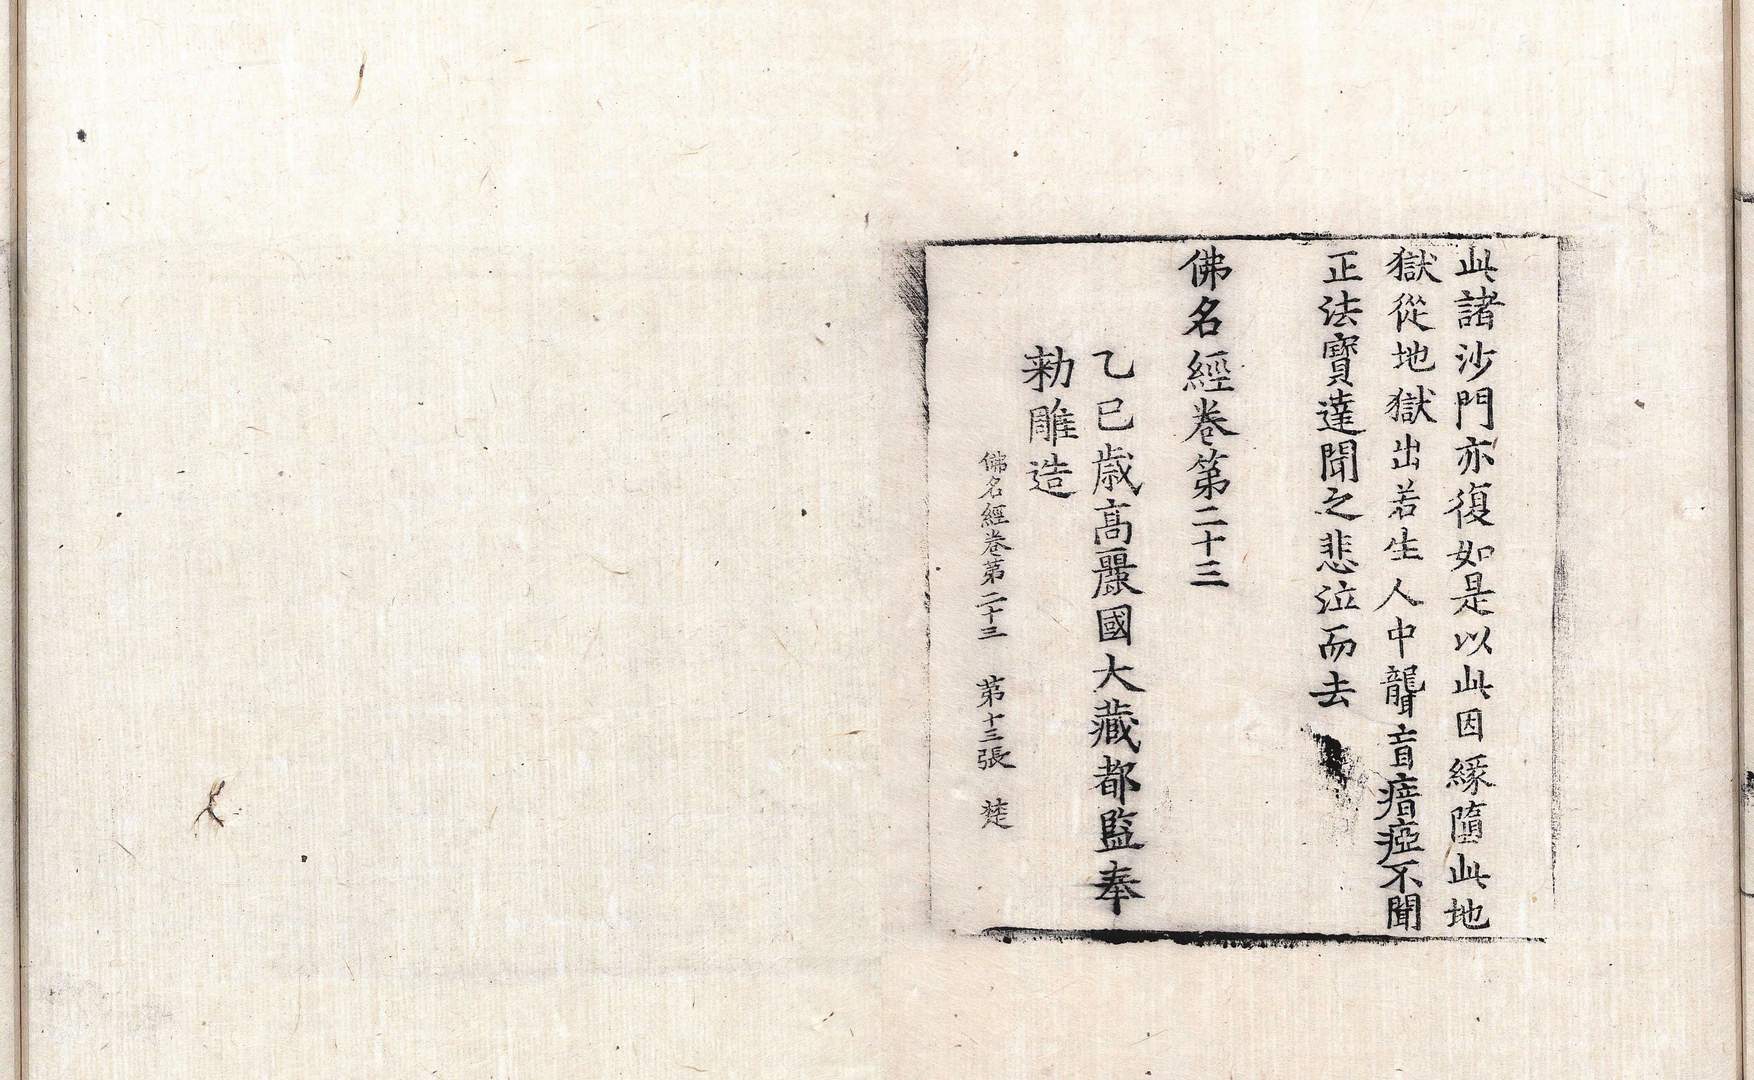 此諸沙門亦復如是以此因緣隨此地
獄從地獄出若生人中聾盲瘖瘂不聞
正法寶達聞之悲泣而去
佛名經卷第二十三
乙巳歲高麗國大藏都監奉
勑雕造
佛名經卷第二十三 第十三張 楚